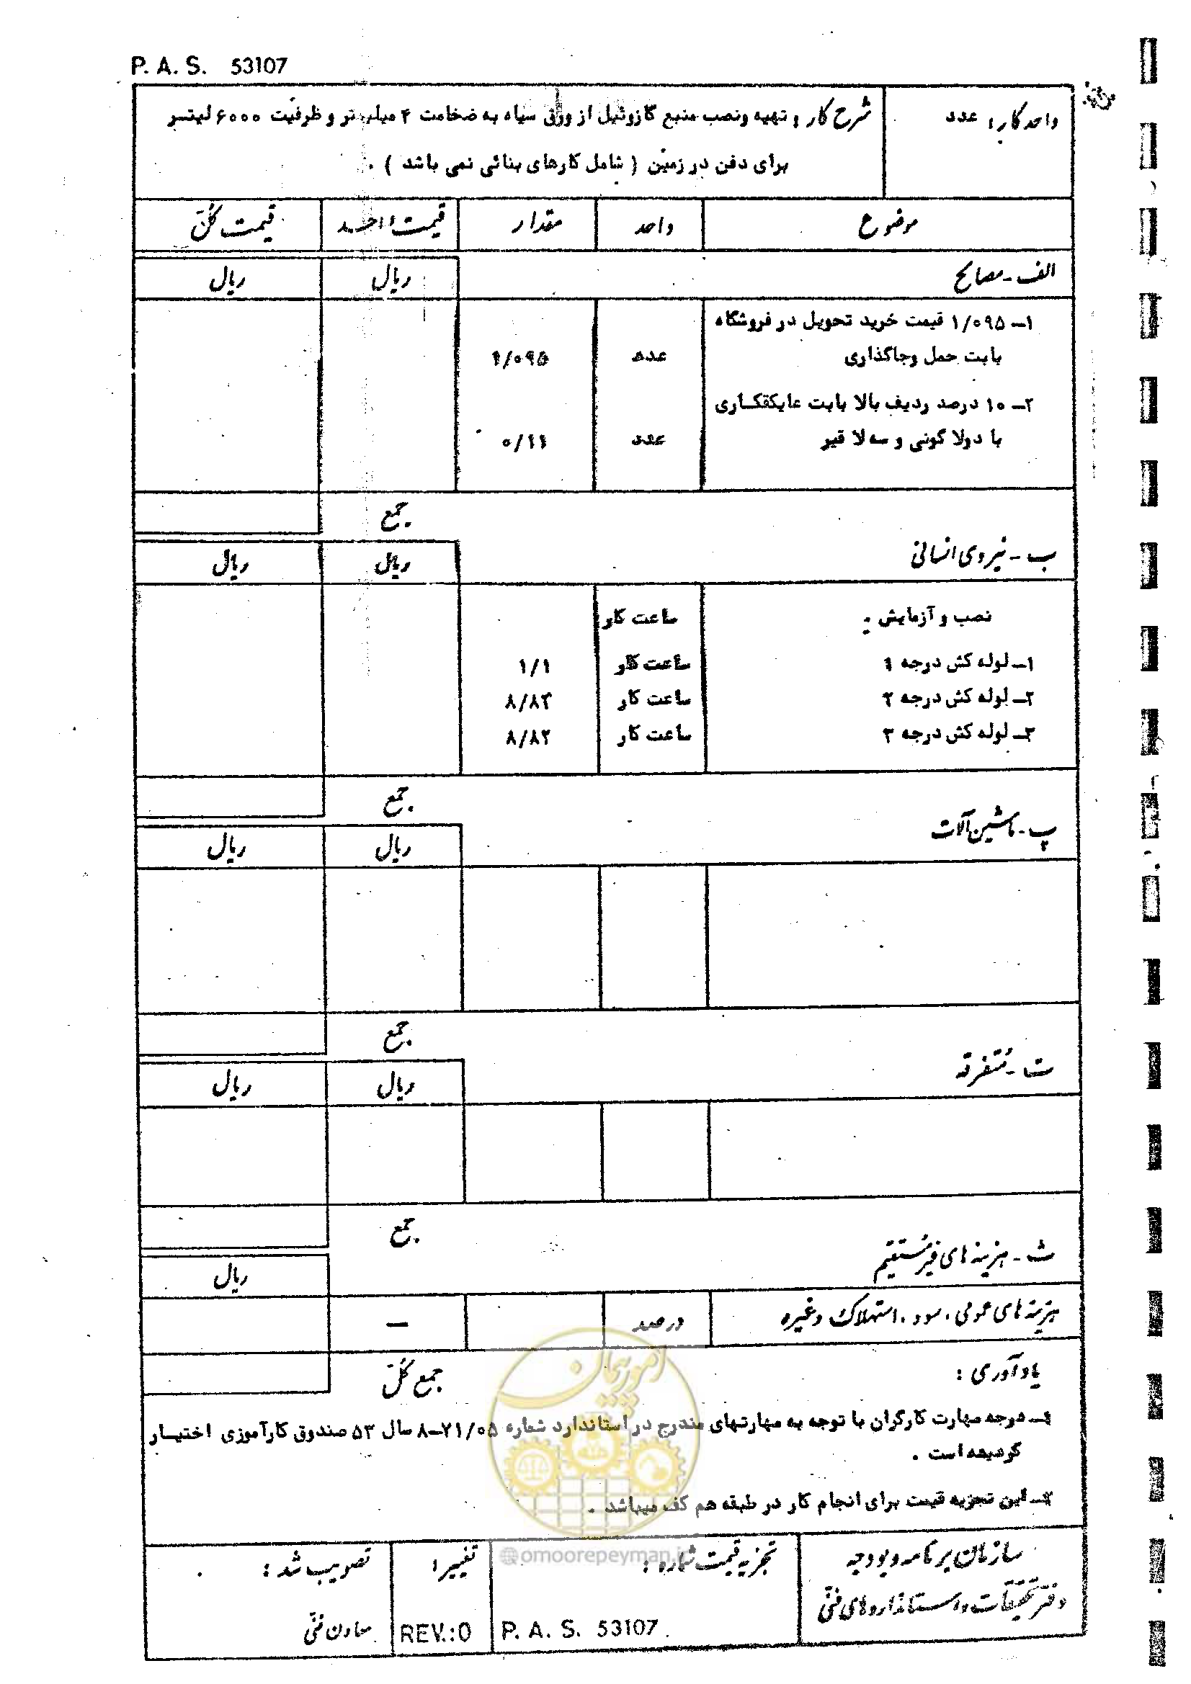 P. A. S. 53107
واحد کار : عدد
شرح کار : تهیه ونصب منبع گازوئیل از ورق سیاه به ضخامت ۴ میلیمتر و ظرفیت ۶۰۰۰ لیتسر
برای دفن در زمین ( شامل کارهای بنائی نمی باشد ) .
موضوع واحد مقدار قیمت واحد قیمت کل
الف - مصالح ریال ریال
۱ــ ۱/۰۹۵ قیمت خرید تحویل در فروشگاه
بابت حمل وجاگذاری عدد ۱/۰۹۵
۲ــ ۱۰ درصد ردیف بالا بابت عایقکاری
با دولا گونی و سه لا قیر عدد ۰/۱۱
جمع
ب - نیروی انسانی ریال ریال
نصب و آزمایش : ساعت کار
۱ــ لوله کش درجه ۱ ساعت کار ۱/۱
۲ــ لوله کش درجه ۲ ساعت کار ۸/۸۲
۳ــ لوله کش درجه ۳ ساعت کار ۸/۸۲
جمع
پ - ماشین آلات ریال ریال
جمع
ت - متفرقه ریال ریال
جمع
ث - هزینه های غیرمستقیم ریال
هزینه های عمومی ، سود ، استهلاک وغیره درصد —
جمع کل
یادآوری :
۱ــ درجه مهارت کارگران با توجه به مهارتهای مندرج در استاندارد شماره ۲۱/۰۵ــ۸ سال ۵۳ صندوق کارآموزی اختیار
گردیده است .
۲ــ این تجزیه قیمت برای انجام کار در طبقه هم کف میباشد .
امور پیمان
@omoorepeyman.ir
سازمان برنامه و بودجه
دفتر تحقیقات و استانداردهای فنی
تجزیه قیمت شماره :
P. A. S. 53107
تغییر :
REV.:0
تصویب شد :
معاون فنی